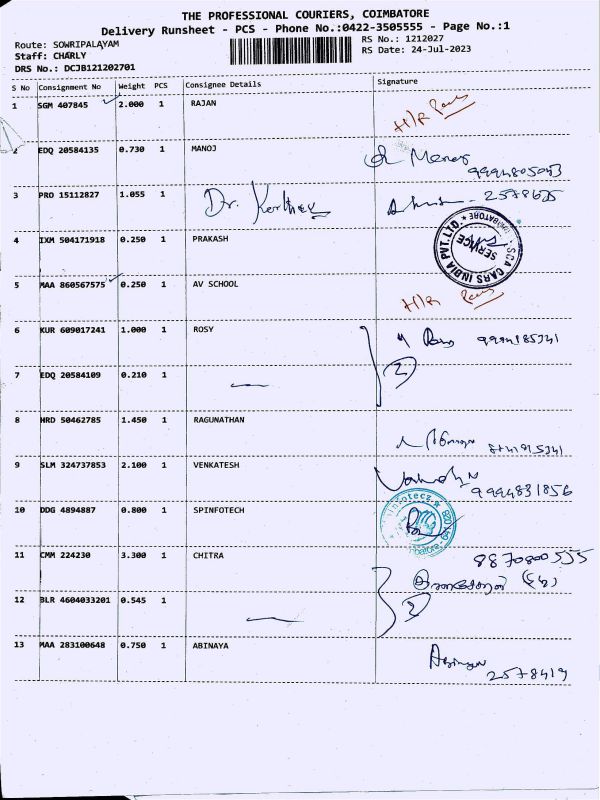 THE PROFESSIONAL COURIERS, COIMBATORE
Delivery Runsheet - PCS - Phone No.:0422-3505555 - Page No.:1
Route: SOWRIPALAYAM RS No.: 1212027
Staff: CHARLY RS Date: 24-Jul-2023
DRS No.: DCJB121202701
S No Consignment No Weight PCS Consignee Details Signature
1 SGM 407845 2.000 1 RAJAN H/R
2 EDQ 20584135 0.730 1 MANOJ Manoj
9994805043
3 PRO 15112827 1.055 1 Dr. 2578625
4 IXM 504171918 0.250 1 PRAKASH SCA CARS INDIA PVT.LTD. SERVICE COIMBATORE
5 MAA 860567575 0.250 1 AV SCHOOL H/R
6 KUR 609017241 1.000 1 ROSY 9994185341
7 EDQ 20584109 0.210 1 2
8 HRD 50462785 1.450 1 RAGUNATHAN
9 SLM 324737853 2.100 1 VENKATESH
9994831856
10 DDG 4894887 0.800 1 SPINFOTECH
11 CMM 224230 3.300 1 CHITRA 8870800555
12 BLR 4604033201 0.545 1 2
13 MAA 283100648 0.750 1 ABINAYA Abinaya
2578419